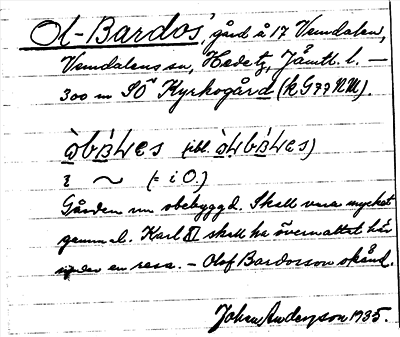 Ol-Bardos' gård å 17 Vemdalen,
Vemdalens sn, Hede tg, Jämtl. l. —
300 m SO Kyrkogård (kG77NM).
(ibl.
i ~ (= i O.)
Gården nu obebyggd. Skall vara mycket
gammal. Karl XI skall ha övernattat här
under en resa. – Olof Bardosson okänd.
Johan Anderson 1935.